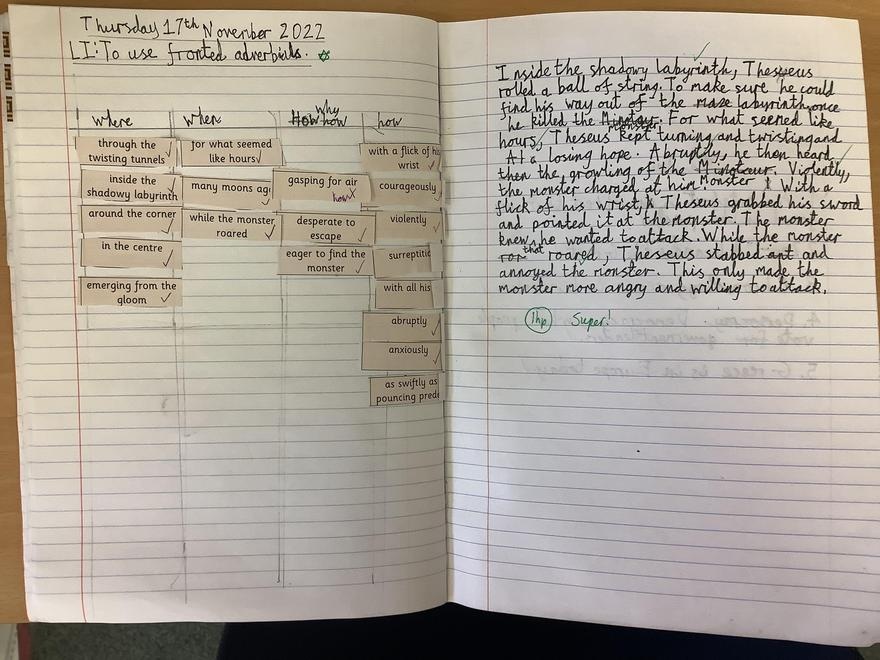 Thursday 17th November 2022
LI: To use fronted adverbials.
where
when
why
how
through the
twisting tunnels
inside the
shadowy labyrinth
around the corner
in the centre
emerging from the
gloom
for what seemed
like hours
many moons ag
while the monster
roared
gasping for air
how X
desperate to
escape
eager to find the
monster
with a flick of his
wrist
courageously
violently
surreptitio
with all his
abruptly
anxiously
as swiftly as
pouncing preda
Inside the shadowy labyrinth, Theseus
rolled a ball of string. To make sure he could
find his way out of the maze labyrinth, once
he killed the Minotaur. For what seemed like
monster
hours, Theseus kept turning and twisting and
At a losing hope. Abruptly, he then heard
then the growling of the Minotaur. Violently,
the monster charged at him. Monster ! With a
flick of his wrist, Theseus grabbed his sword
and pointed it at the monster. The monster
knew, he wanted to attack. While the monster
that roared, Theseus stabbed and
annoyed the monster. This only made the
monster more angry and willing to attack.
1hp Super!